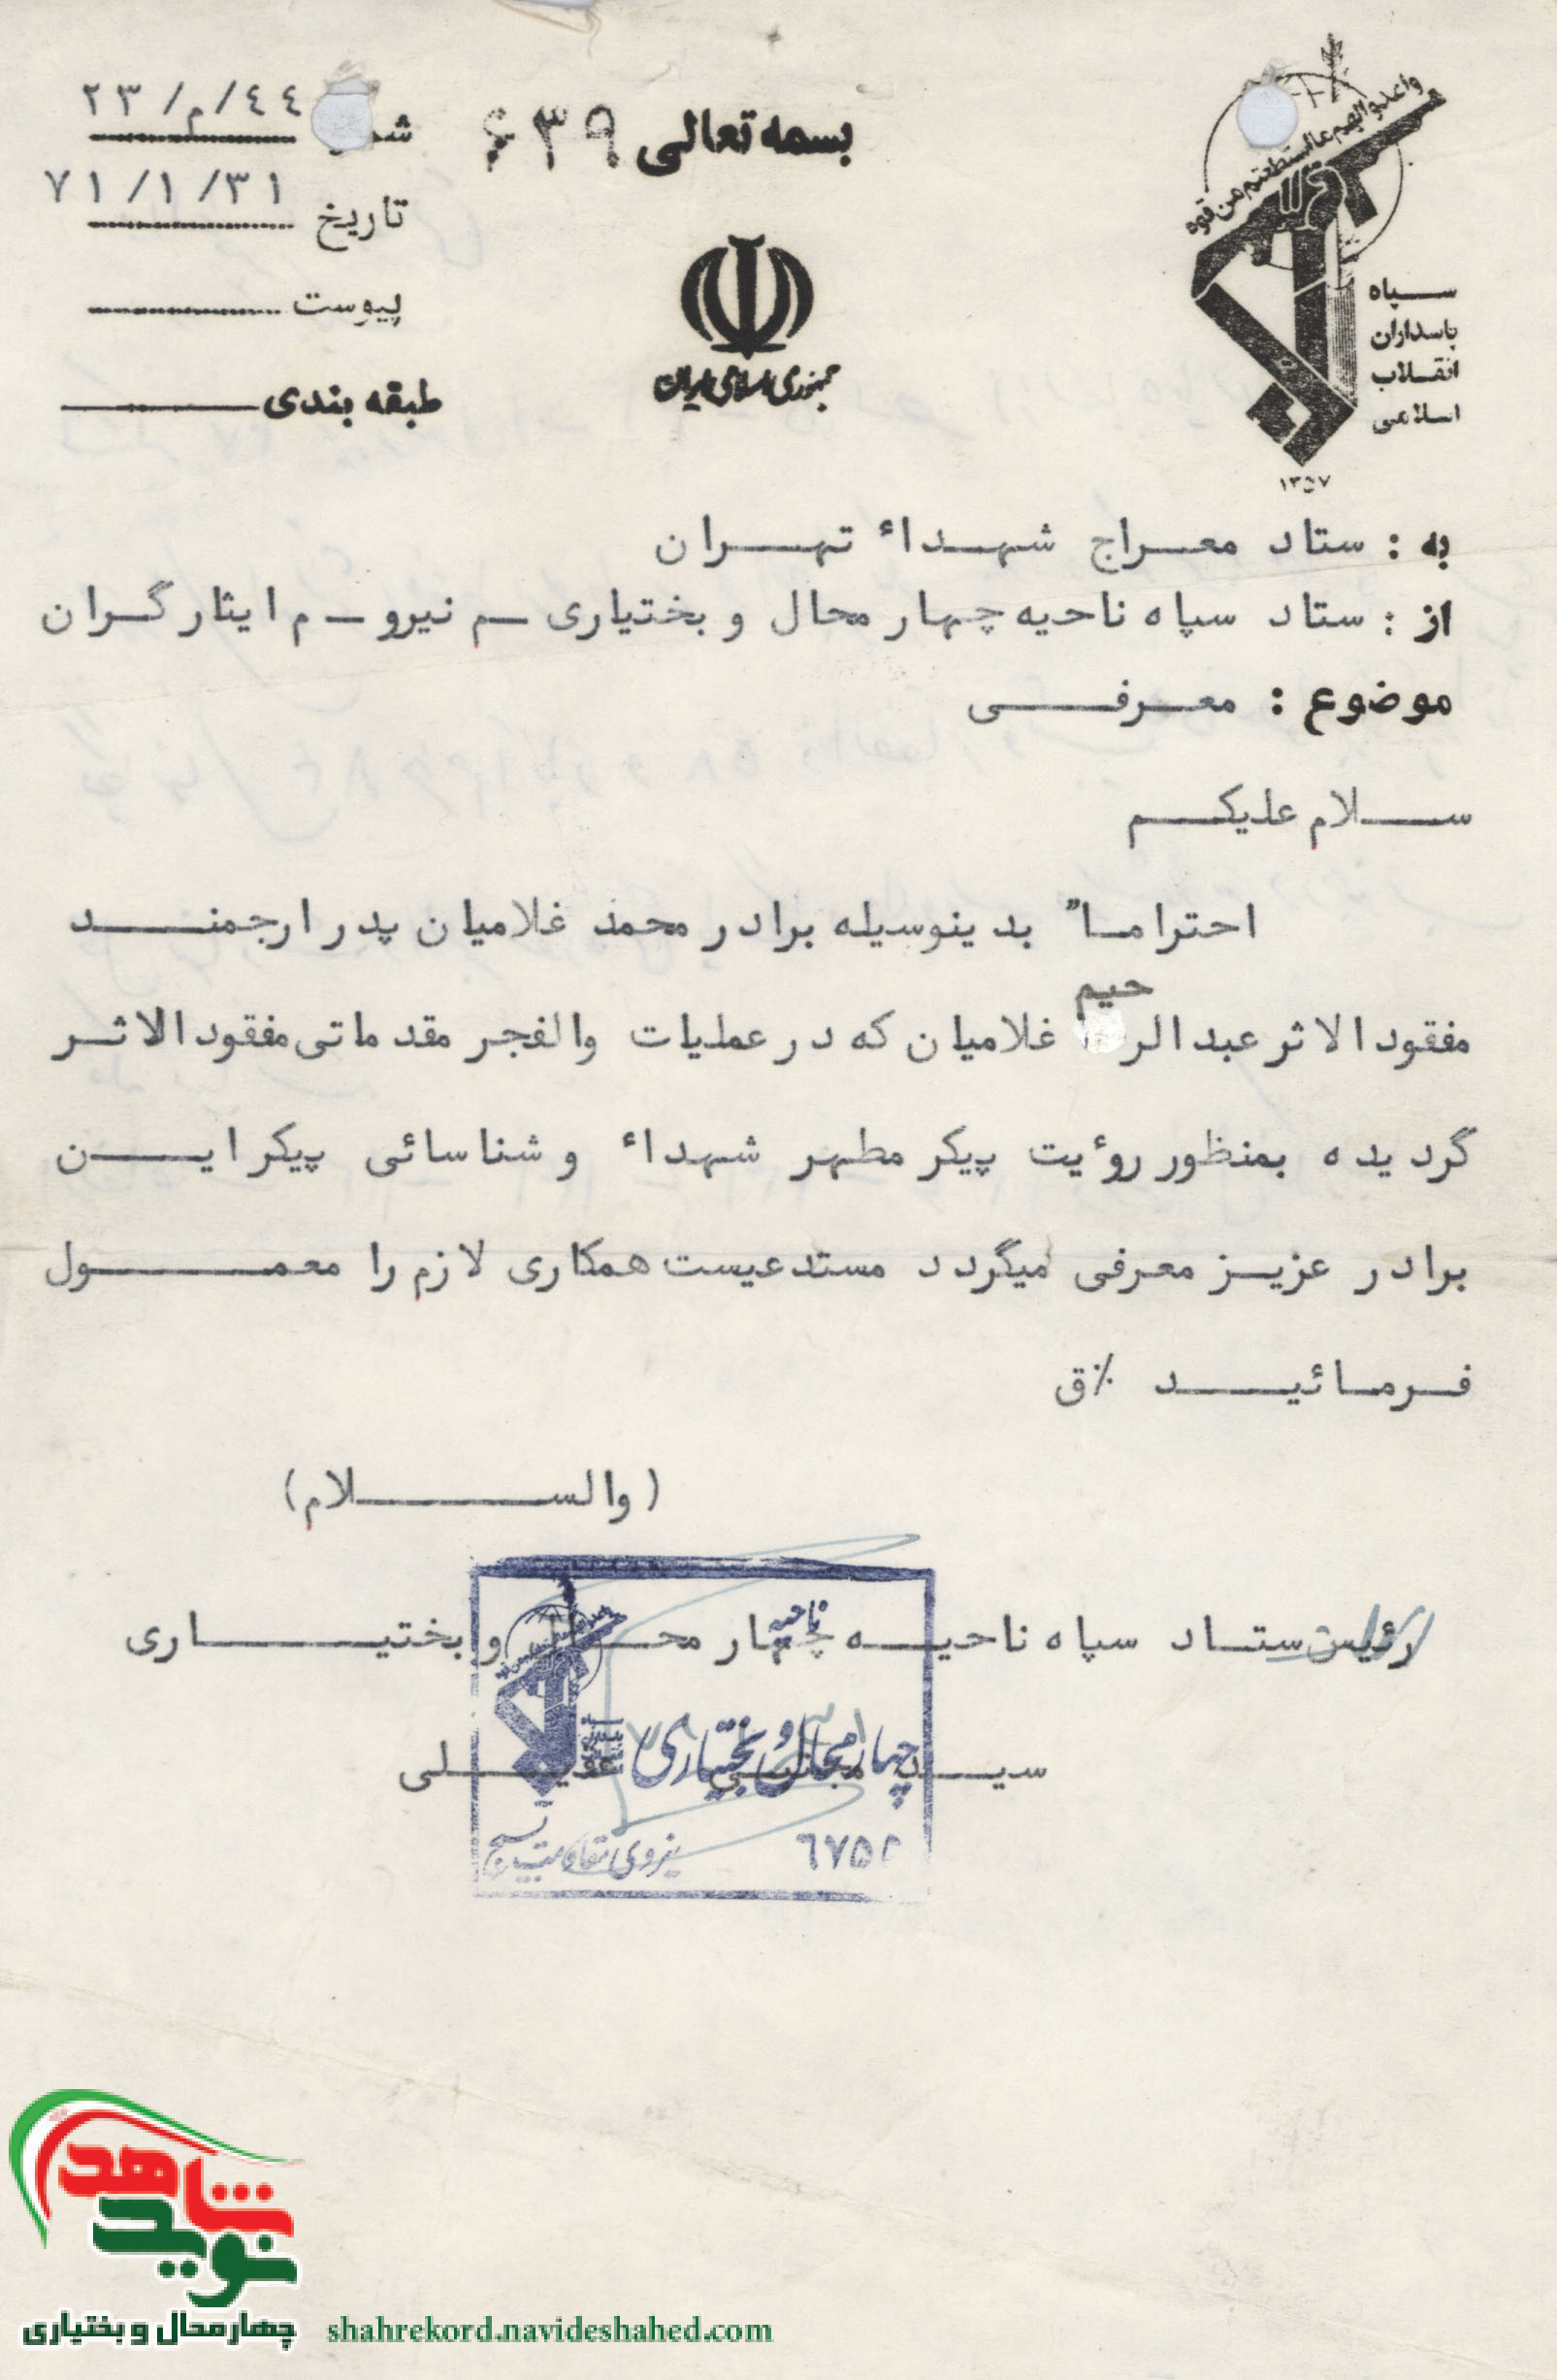 بسمه تعالی
۶۳۹
شماره ۲۳/م/۴۴
تاریخ ۷۱/۱/۳۱
پیوست
طبقه بندی
واعدوالهم مااستطعتم من قوه
سپاه
پاسداران
انقلاب
اسلامی
۱۳۵۷
جمهوری اسلامی ایران
به : ستاد معراج شهداء تهران
از : ستاد سپاه ناحیه چهارمحال و بختیاری – م نیرو – م ایثارگران
موضوع : معرفی
سلام علیکم
احتراما" بدینوسیله برادر محمد غلامیان پدر ارجمند
مفقودالاثر عبدالرحیم غلامیان که در عملیات والفجر مقدماتی مفقودالاثر
گردیده بمنظور رؤیت پیکر مطهر شهداء و شناسائی پیکر این
برادر عزیز معرفی میگردد مستدعیست همکاری لازم را معمول
فرمائید ٪ق
(والسلام)
رئیس ستاد سپاه ناحیه چهارمحال و بختیاری
سید مجتبی عقیلی
ناحیه
چهارمحال و بختیاری
نیروی مقاومت بسیج
۶۷۵۲
نوید شاهد
چهارمحال و بختیاری
shahrekord.navideshahed.com